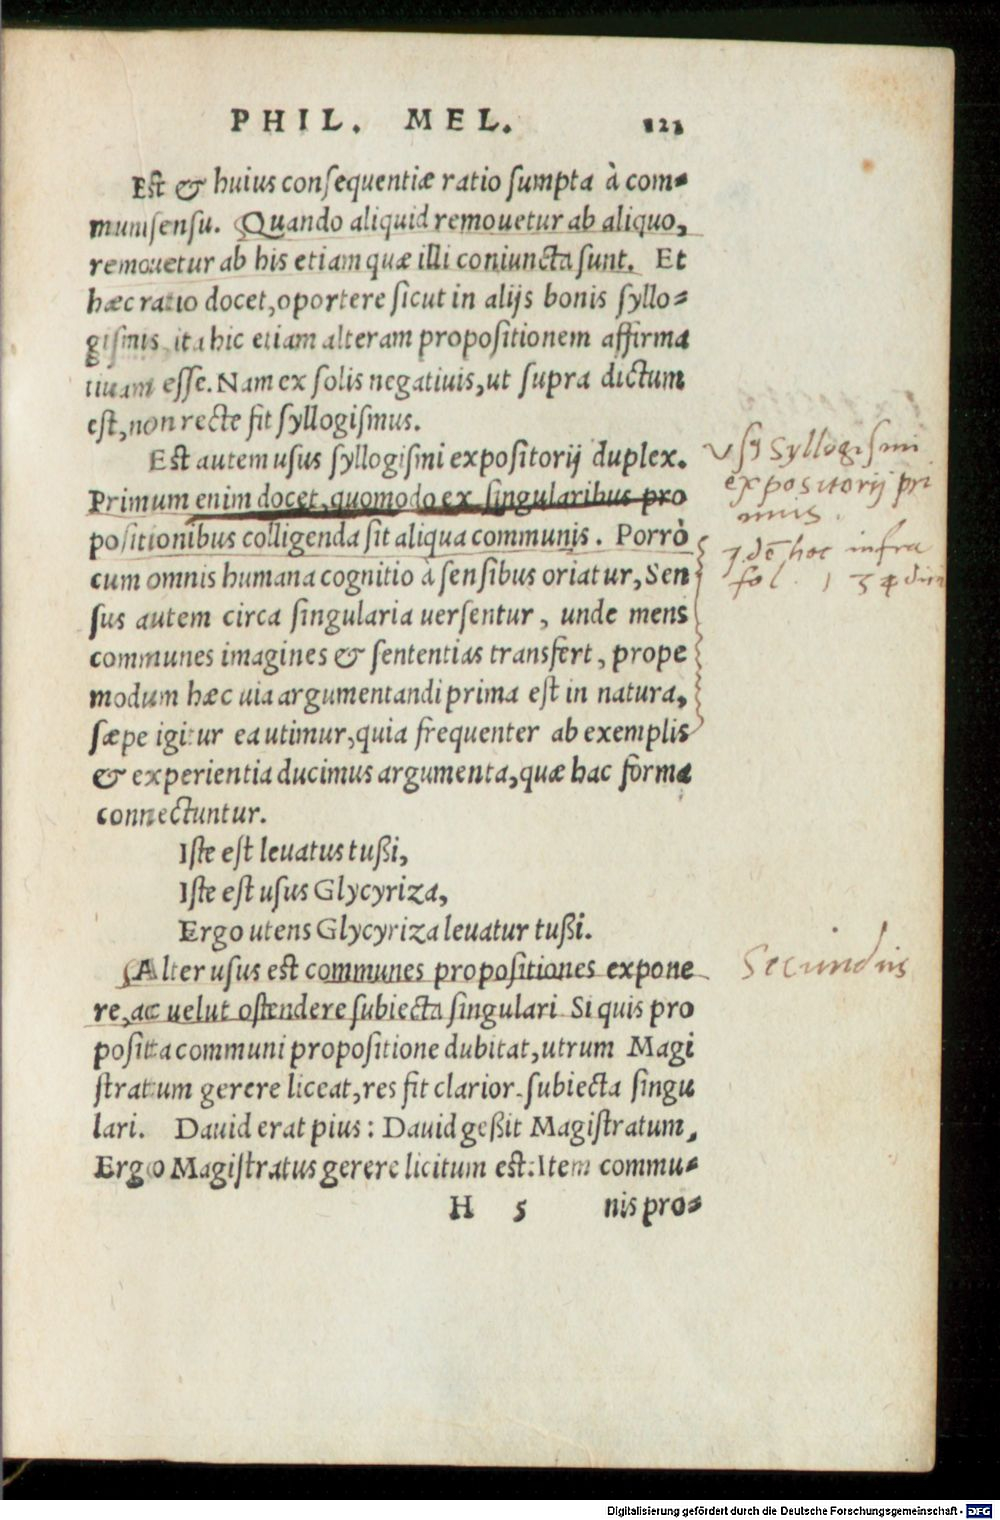 PHIL. MEL. 121
Est & huius consequentiæ ratio sumpta à com-
muni sensu. Quando aliquid remouetur ab aliquo,
remouetur ab his etiam quæ illi coniuncta sunt. Et
hæc ratio docet, oportere sicut in alijs bonis syllo-
gismis, ita hic etiam alteram propositionem affirma
tiuam esse. Nam ex solis negatiuis, ut supra dictum
est, non recte fit syllogismus.
Est autem usus syllogismi expositorij duplex.
Primum enim docet, quomodo ex singularibus pro
positionibus colligenda sit aliqua communis. Porrò
cum omnis humana cognitio à sensibus oriatur, Sen
sus autem circa singularia uersentur, unde mens
communes imagines & sententias transfert, prope
modum hæc uia argumentandi prima est in natura,
sæpe igitur ea utimur, quia frequenter ab exemplis
& experientia ducimus argumenta, quæ hac forma
connectuntur.
Iste est leuatus tußi,
Iste est usus Glycyriza,
Ergo utens Glycyriza leuatur tußi.
Alter usus est communes propositiones expone
re, ac uelut ostendere subiecta singulari. Si quis pro
posita communi propositione dubitat, utrum Magi
stratum gerere liceat, res fit clarior subiecta singu
lari. Dauid erat pius: Dauid geßit Magistratum,
Ergo Magistratus gerere licitum est. Item commu-
H 5 nis pro-
syllogismi
expositorij pri
mus.
de hoc infra
fol. 134
Secundus
Digitalisierung gefördert durch die Deutsche Forschungsgemeinschaft - DFG